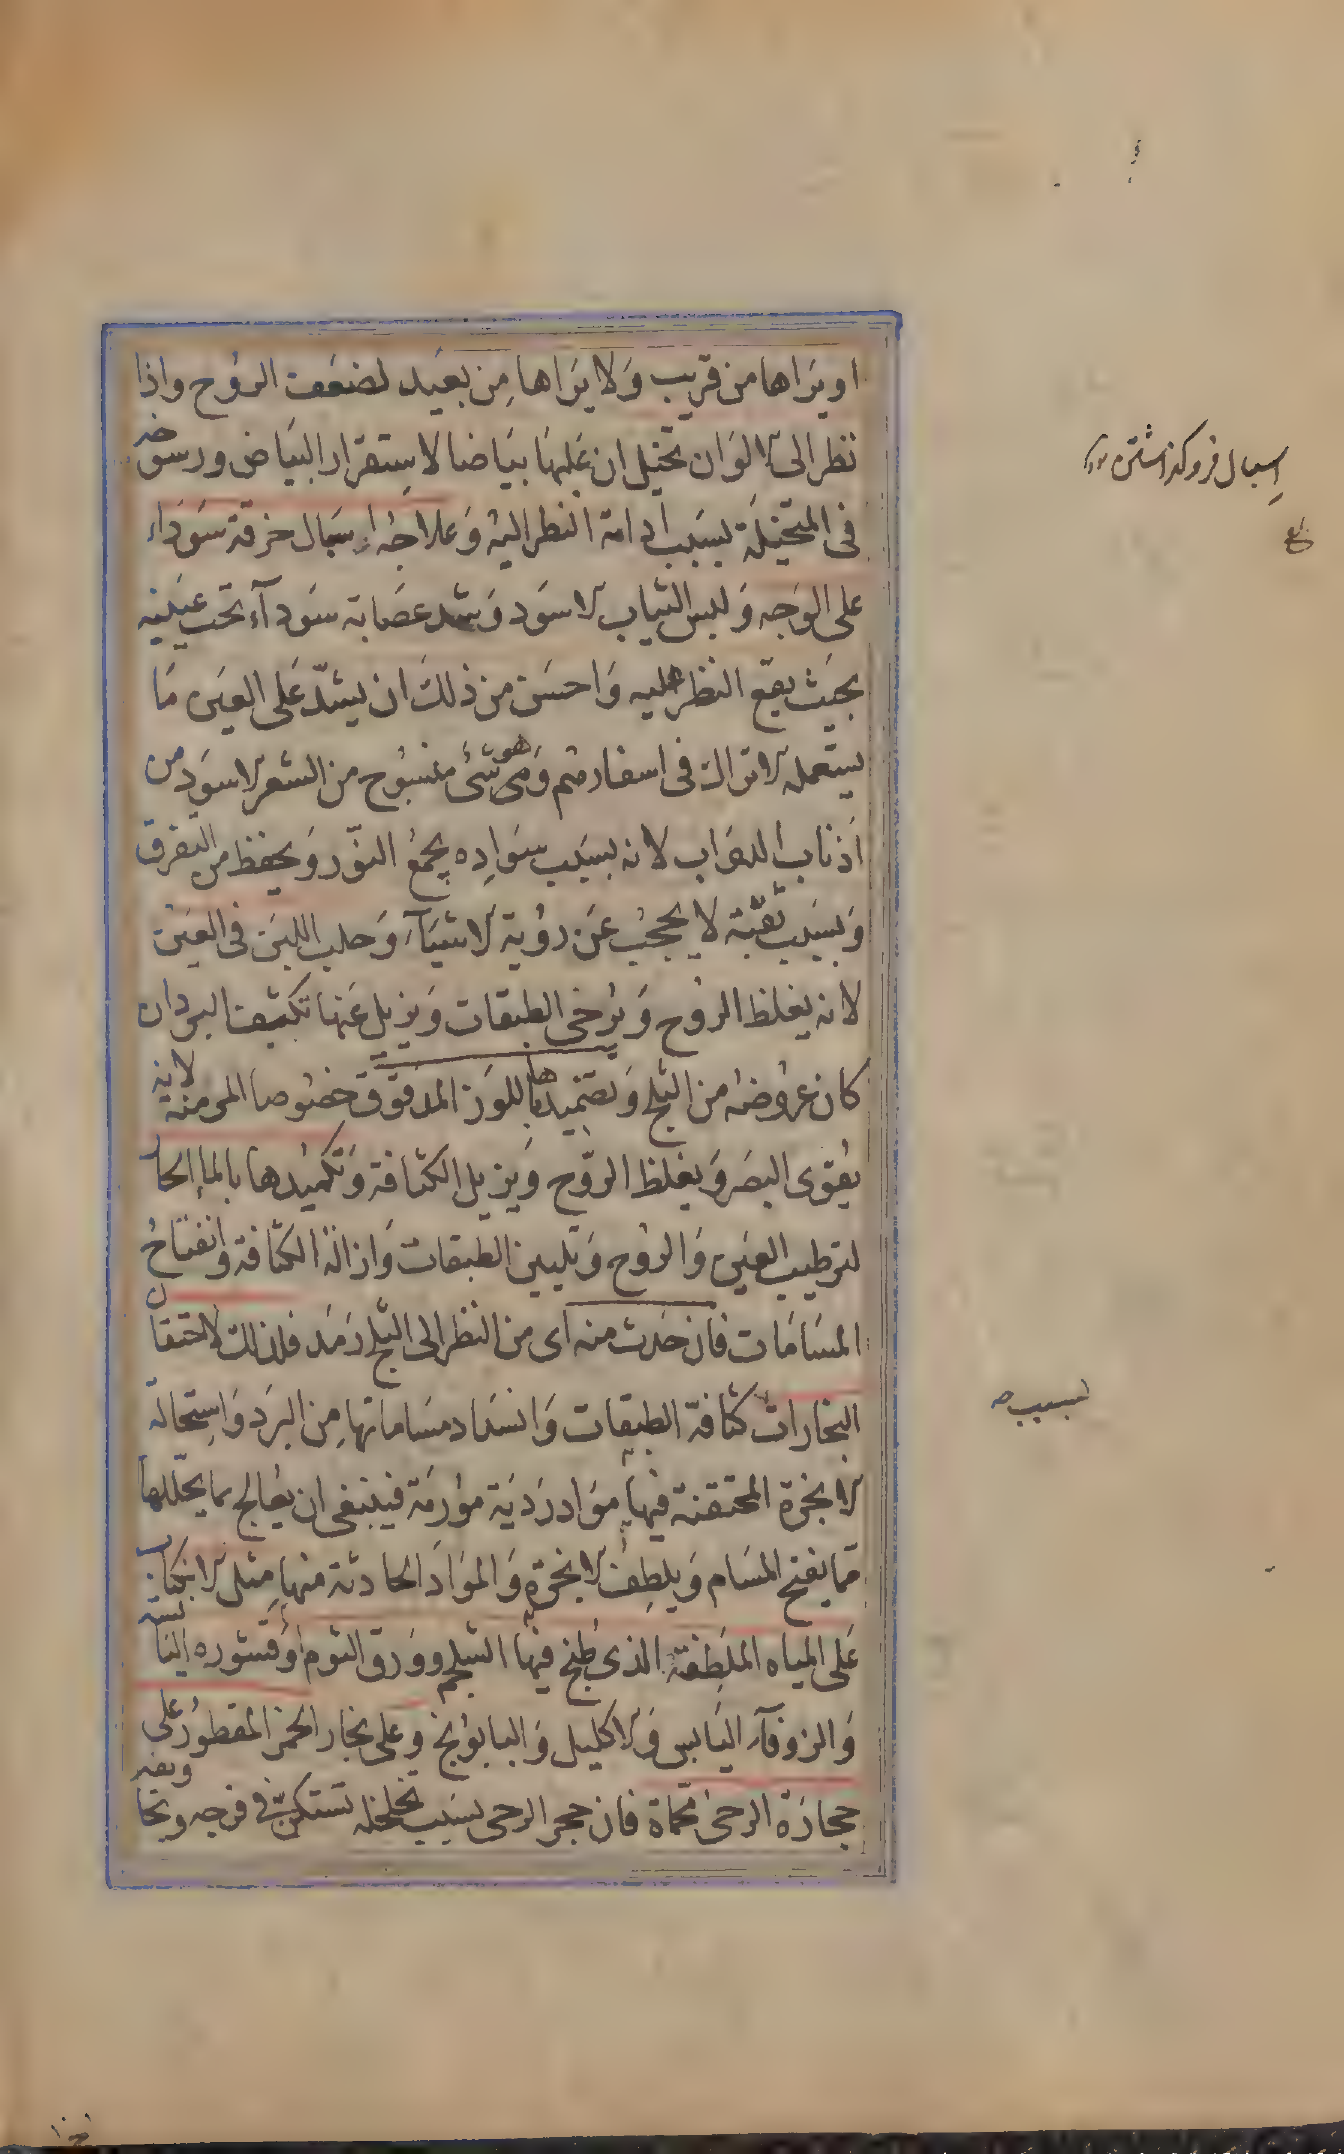 او يراها من قريب ولا يراها من بعيد لضعف الروح واذا
نظر الى الالوان تخيل ان عليها بياضا لاستقرار البياض ورسوخه
فى المتخيلة بسبب ادامة النظر اليه وعلاجه اسبال خرقة سوداء
على الوجه ولبس الثياب الاسود وشد عصابة سوداء تحت عينيه
بحيث يقع النظر عليه واحسن من ذلك ان يشد على العين ما
يستعمله الاتراك فى اسفارهم وهو شئ منسوج من الشعر الاسود من
اذناب الدواب لانه بسبب سواده يجمع النور ويحفظ من التفرق
وبسبب ثقبه لا يحجب عن رؤية الاشياء وحلب اللبن فى العين
لانه يغلظ الروح ويرخى الطبقات ويزيل عنها تكثيف البرد ان
كان عروضه من الثلج وتضميدها باللوز المدقوق خصوصا المر منه لانه
يقوى البصر ويغلظ الروح ويزيل الكثافة وتكميدها بالماء الحار
لترطيب العين والروح وتليين الطبقات وازالة الكثافة وانفتاح
المسامات فان حدث منه اى من النظر الى الثلج رمد فلذلك لاحتقان
البخارات كثافة الطبقات وانسداد مساماتها من البرد واستحالة
الابخرة المحتقنة فيها مواد ردية مورمة فينبغى ان يعالج بما يحللها
مما يفتح المسام ويلطف الابخرة والمواد الحادثة منها مثل الانكباب
على المياه الملطفة الذى طبخ فيها الشلجم وورق الثوم او قشوره اليابسة
والزوفاء اليابس والاكليل والبابونج وعلى بخار الخمر المقطور على
حجارة الرحى محماة فان حجر الرحى بسبب تخلخله تستكن فى فرجه
اسبال فروگذاشتن
لسبب صح